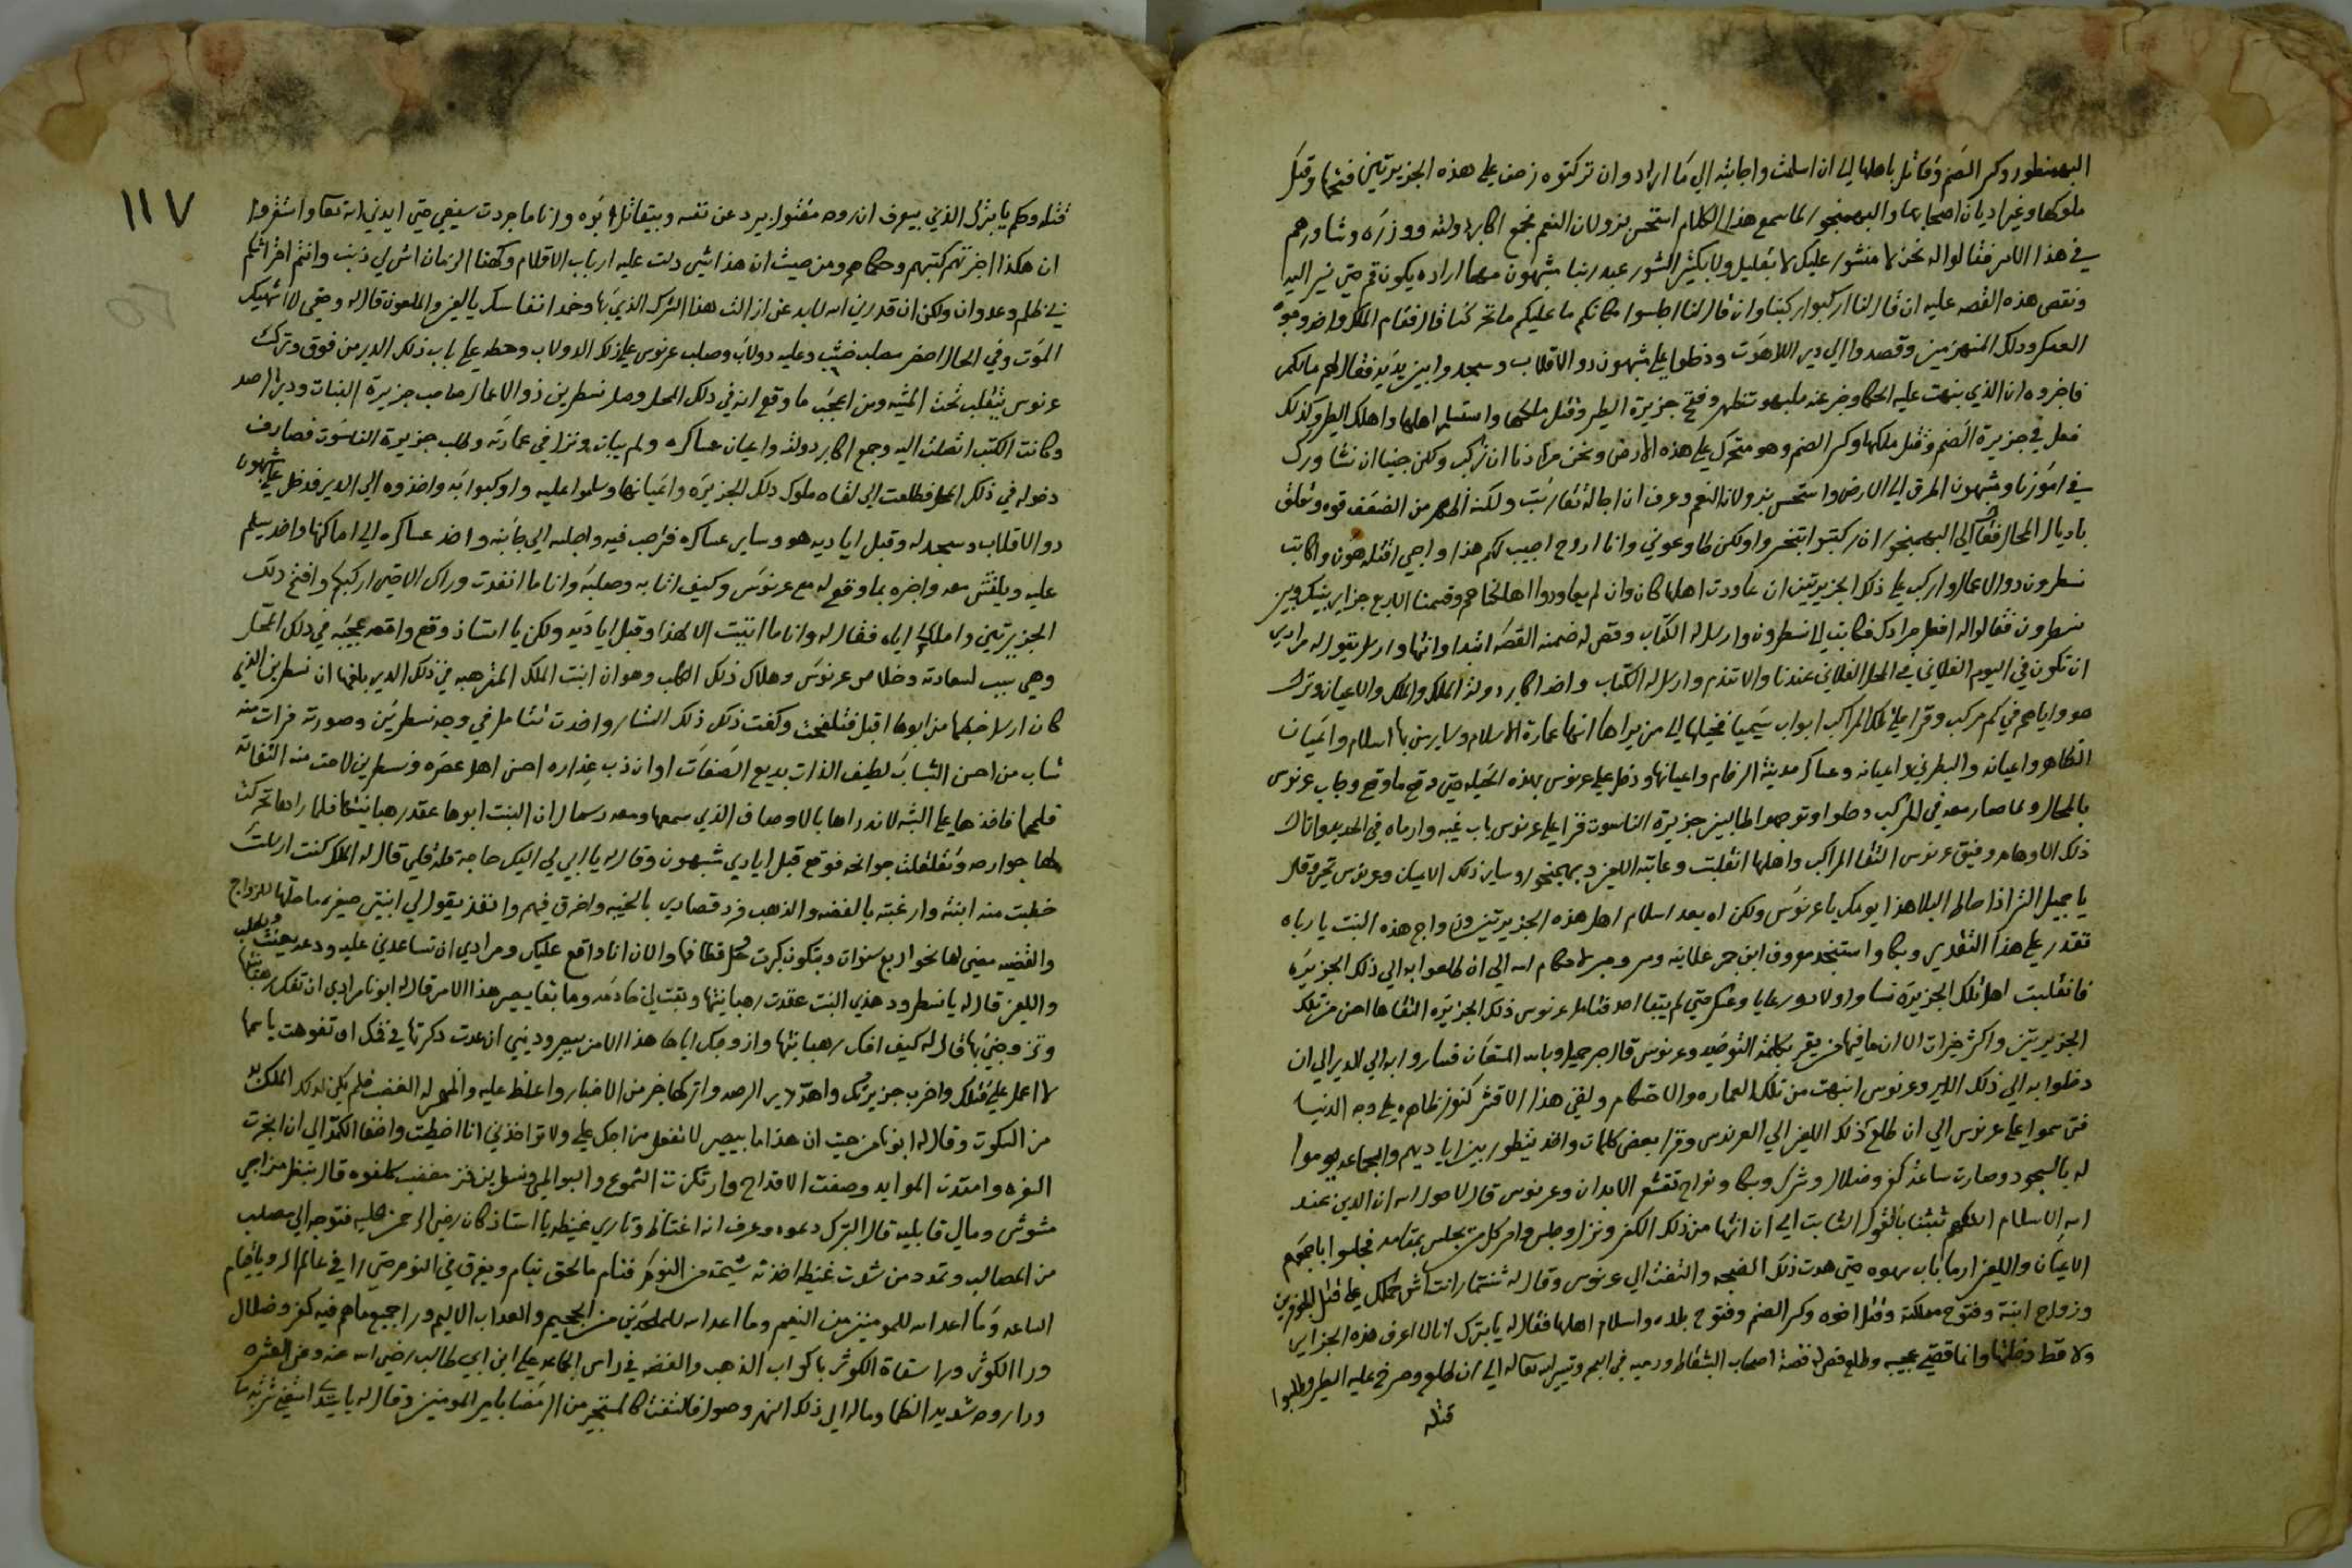 البهمنطور وكسر الصنم وقاتل باهلها الي ان اسلمت واجابته الي ما اراد وان تركتوه زحف علي هذه الجزيرتين فتحها وقتل
ملوكها وغير اديان اصحابها والبهمنجور لما سمع هذا الكلام استحسن بزولان النعم فجمع اكابر دولته ووزره وشاورهم
في هذا الامر فقالوا له نحن لا منشور عليك لا بقليل ولا بكثير الشور عند ربنا شبهون مهما اراده يكون قم حتي نسير اليه
ونقص هذه القصه عليه ان قال لنا اركبوا ركبنا وان قال لنا اجلسوا مكانكم ما عليكم ما تحركنا قال فقام الملك واخد وجوه
العسكر ودلك المنهزمين وقصدوا الي دير اللاهوت ودخلوا علي شبهون دو الاقلاب وسجدوا بين يديه فقال لهم مالكم
فاخبروه ان الذي بنهت عليه الحكما وخبر عنه ظهر وفتح جزيرة الطير وقتل ملكها واستسلم اهلها واهلك الطير وكذلك
فعل في جزيرة الصنم وقتل ملكها وكسر الصنم وهو متحرك علي هذه الارض ونحن مرادنا ان نركب ولكن جينا ان نشاورك
في امورنا وشبهون اطرق الي الارض واستحس بزولان النعم وعرف ان اجاله تقاربت ولكنه اظهر من الضعف قوه وتعلق
باديال المحال فقال الي البهمنجور ان ركبتوا تنخسروا ولكن طاوعوني وانا اروح اجيب لكم هذا واجي اقتله هون واكاتب
نسطرون دو الاعمال واركب علي ذلك الجزيرتين ان عاودت اهلها كان وان لم يعاودوا اهلكناهم وقسمنا الاربع جزاير بينك وبين
نسطرون فقالوا له افعل مرادك فكاتب الي نسطرون وارسل له الكتاب وقص له ضمنه القصه ابتدا وانتها وارسل يقول له مرادي
ان تكون في اليوم الفلاني في المحل الفلاني عندنا والا تندم وارسل له الكتاب واخد اكابر دولة الملك والملك والاعيان ونزل
هو واياهم في كم مركب وقرا علي تلك المراكب ابواب سيميا فخيل الي من يراها انها عمارة الاسلام وساير من بها اسلام واعيان
الظاهر واعيانه والبطرني واعيانه وعساكر مدينة الرخام واعيانها ودخل علي عرنوس بهذه الحيله حتي وقع ما وقع وجاب عرنوس
بالمحال ولما صار معه في المركب وحلوا وتوجهوا طالبين جزيرة الناسوت قرا علي عرنوس باب غيبه وارماه في الحديد واتال
ذلك الاوهام وفيق عرنوس التقا المراكب واهلها انقلبت وعاتبه اللعين وبهمنجور وساير ذلك الاعيان وعرنوس تحير وقال
يا جميل الستر اذا حاط البلا هذا يومك يا عرنوس ولكن اه بعد اسلام اهل هذه الجزيرتين وزواج هذه البنت يا رباه
تقدر علي هذا التقدير وبكا واستنجد
فانقلبت اهل تلك الجزيره نسا واولاد ورعايا وعسكر حتي لم يبقا احد فتامل عرنوس ذلك الجزيره التقاها احسن من تلك
الجزيرتين واكثر خيرات الا ان ما فيها من يقر بكلمة التوحيد وعرنوس قال صبر جميل وبالله المستعان فساروا به الي الدير الي ان
دخلوا به الي ذلك الدير وعرنوس انبهت من تلك العماره والاحكام ولقي هذا الاقشر كنوز ظاهره علي وجه الدنيا
فتسموا علي عرنوس الي ان طلع ذلك اللعين الي العرندس وقرا بعض كلمات واخد ينطور بين اياديهم والجماعه يوموا
له بالسجود وصارت ساعة كفر وضلال وشرك وبكا ونواح تقشعر الابدان وعرنوس قال لا حول الله ان الدين عند
الله الاسلام اللهم ثبتنا بالقول الثابت الي ان انتها من ذلك الكفر ونزل وجلس وامر كل من يجلس بمقامه فجلسوا باجمعهم
الاعيان واللعين ارما باب سهوه حتي هدت ذلك الضجه والتفت الي عرنوس وقال له شنشمار انت اش حملك علي قتل
وزواج ابنته وفتوح مملكته وقتل اخوه وكسر الصنم وفتوح بلاده واسلام اهلها فقال له يا بترك انا لا اعرف هذه الجزاير
ولا قط دخلتها وانما قصتي عجيبه وطلع قص له قصة اصحاب الشقاط ورميه في اليم وتيسير الله تعالي له الي ان طلع وصرخ عليه الطير وطلبوا
قتله
١١٧
قتله وحكم يا بترك الذي بيعرف ان روحه مقتوله يرد عن نفسه وبيقاتل ابوه وانا ما جردت سيفي حتي ايدني الله تعالي واستقروا
ان هكذا اخبرتهم كتبهم وحكماهم ومن حيث ان هذا شي دلت عليه ارباب الاقلام وكهنا الزمان اش لي ذنب وانتم اخراتكم
في ظلم وعدوان ولكن ان قدرني الله لابد عن ازالت هذا الشرك الذي بها وخمد انفاسك يا لعين والملعون قال له وحقي لاشهيك
الموت وفي الحال احضر مصلب خشب وعليه دولاب وصلب عرنوس علي ذلك الدولاب وحطه علي باب ذلك الدير من فوق وترك
عرنوس يتقلب تحت المشيه ومن اعجب ما وقع انه في دلك المحل وصل نسطرين ذو الاعمال صاحب جزيرة البنات ودير الرصد
وكانت الكتب اتصلت اليه وجمع اكابر دولته واعيان عساكره ولم يبات ونزل في عمارته وطلب جزيرة الناسوت فصادف
دخوله في ذلك المحل فطلعت الي لقاه ملوك ذلك الجزيره واعيانها وسلموا عليه واوكبوا به واخدوه الي الدير فدخل علي شبهون
دو الاقلاب وسجد له وقبل اياديه هو وساير عساكره فرحب فيه واجلسه الي جانبه واخد عساكره الي اماكنها واخد يسلم
عليه ويلقش معه واخبره بما وقع له مع عرنوس وكيف اتا به وصلبه وانا ما انفدت وراك الا حتي اركبك وافتح دلك
الجزيرتين واملكك اياه فقال له وانا ما اتيت الا لهذا وقبل اياديه ولكن يا استاذ وقع واقعه عجيبه في دلك المحل
وهي سبب لسعادته وخلاص عرنوس وهلاك ذلك الكلب وهو ان ابنت الملك المترهبه في ذلك الدير بلغها ان نسطرين الذي
كان ارسل خطبها من ابوها اقبل فتلفحت وكفت ذلك ذلك الستار واخدت تتامل في وجه نسطرين وصورته فرات منه
شاب من احسن الشباب لطيف الذات بديع الصفات اوان ذب عذاره احسن اهل عصره ونسطرين لاحت منه التفاته
فلمحها فاخدها علي الشبه لانه راها بالاوصاف الذي سمعها ومعه رسمال ان البنت ابوها عقد رهبانيتها فلما راها تحركت
لها جوارحه وتقلقلت جوانحه فوقع قبل ايادي شبهون وقال له يا ابي لي اليك حاجه قال له قلي قال له الملك كنت ارسلت
خطبت منه ابنته وارغبته بالفضه والذهب فرد قصادي بالخيبه واخرق فيهم وانفد يقول لي ابنتي صغيره ما حلها للزواج
والقضيه معين لها نحو اربع سنوات وبتكون كبرت وحل قطافها والان انا واقع عليك ومرادي ان تساعدني عليه ودعه يعتق بقلبه
واللعين قال له يا نسطرود هذي البنت عقدت رهبانيتها وبقت لي خادمه وما بقا يصير هذا الامر قال له ابونا مرادي ان تفك رهبانيتها
وتزوجني بها قال له كيف افك رهبانيتها وازوجك اياها هذا الامر بيصير وديني ان عدت دكرتها في فمك او تفوهت باسمها
لا اعمل علي قتلك واخرب جزيرتك واهد دير الرصد واتركها خبر من الاخبار واغلظ عليه واظهر له الغضب فلم يكن لدلك الملك بد
من السكوت وقال له ابونا من حيث ان هذا ما بيصير لا تفعل من اجلك علي ولا تواخذني انا اخطيت واخفا الكمد الي ان انجزت
السفره وامتدت الموايد وصفت الاقداح وارتكزت الشموع والبواطي ونسطرين قنز مغضب كلفوه قال بنغل مزاجي
مشوش ومالي قابليه قال البترك دعوه وعرف انه اغتاظ وتاري غيظه يا استاذ كان رضي الرحمن عليه فتوجه الي مصلب
من المصالب وتمدد من شدت غيظه اخذته سيمة من النوم فنام ما لحق ينام ويغرق في النوم حتي راي في عالم الرويا قيام
الساعه وما اعد الله للمومنين من النعيم وما اعد الله للملحدين من الجحيم والعداب الاليم وراا جميع ما هم فيه كفر وضلال
وراا الكوثر وراا سقاة الكوثر باكواب الذهب والفضه في راس الجماعه علي ابن ابي طالب رضي الله عنه وعن العشره
وراا روحه شديد الظما وماله الي ذلك النهر وصول فالتفت كالمستجير من الرمضا بامير المومنين وقال له يا سيدي استقني شربة ما